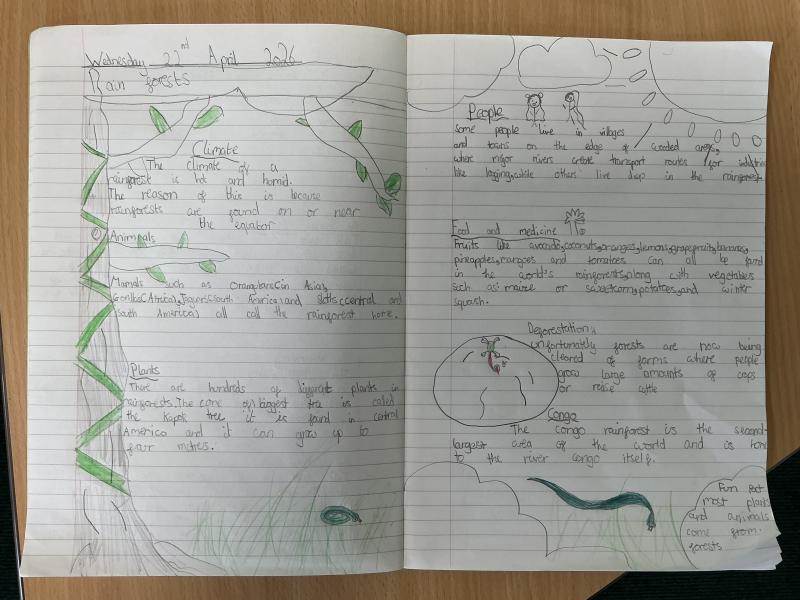 Wednesday 22nd April 2026
Rain forests
Climate
The climate of a
rainforest is hot and homid.
The reason of this is because
rainforests are found on or near
the equator
Animals
Mamals such as Orangutans(in Asia),
Gorillas(Africa), Jaguars(south America) and sloths(central and
south America) all call the rainforest home.
Plants
There are hundreds of different plants in
rainforests. The one of biggest tree is called
the Kapok tree it is found in central
America and it can grow up to
four metres.
People
Some people live in villages
and towns on the edge of wooded areas,
where major rivers create transport routes for
like logging, while others live deep in the rainforest
Food and medicine
Fruits like avocado, coconuts, oranges, lemons, grapefruit, bananas,
pineapples, mangoes and tomatoes can all be found
in the world's rainforests, along with vegetables
such as: maize or sweetcorn, potatoes, and winter
squash.
Deforestation
unfortunately forests are now being
cleared of farms where people
grow large amounts of cops
or raise cattle
Congo
The congo rainforest is the second-
largest area of the world and is home
to the river congo itself.
Fun fact
most plants
and animals
come from
forests